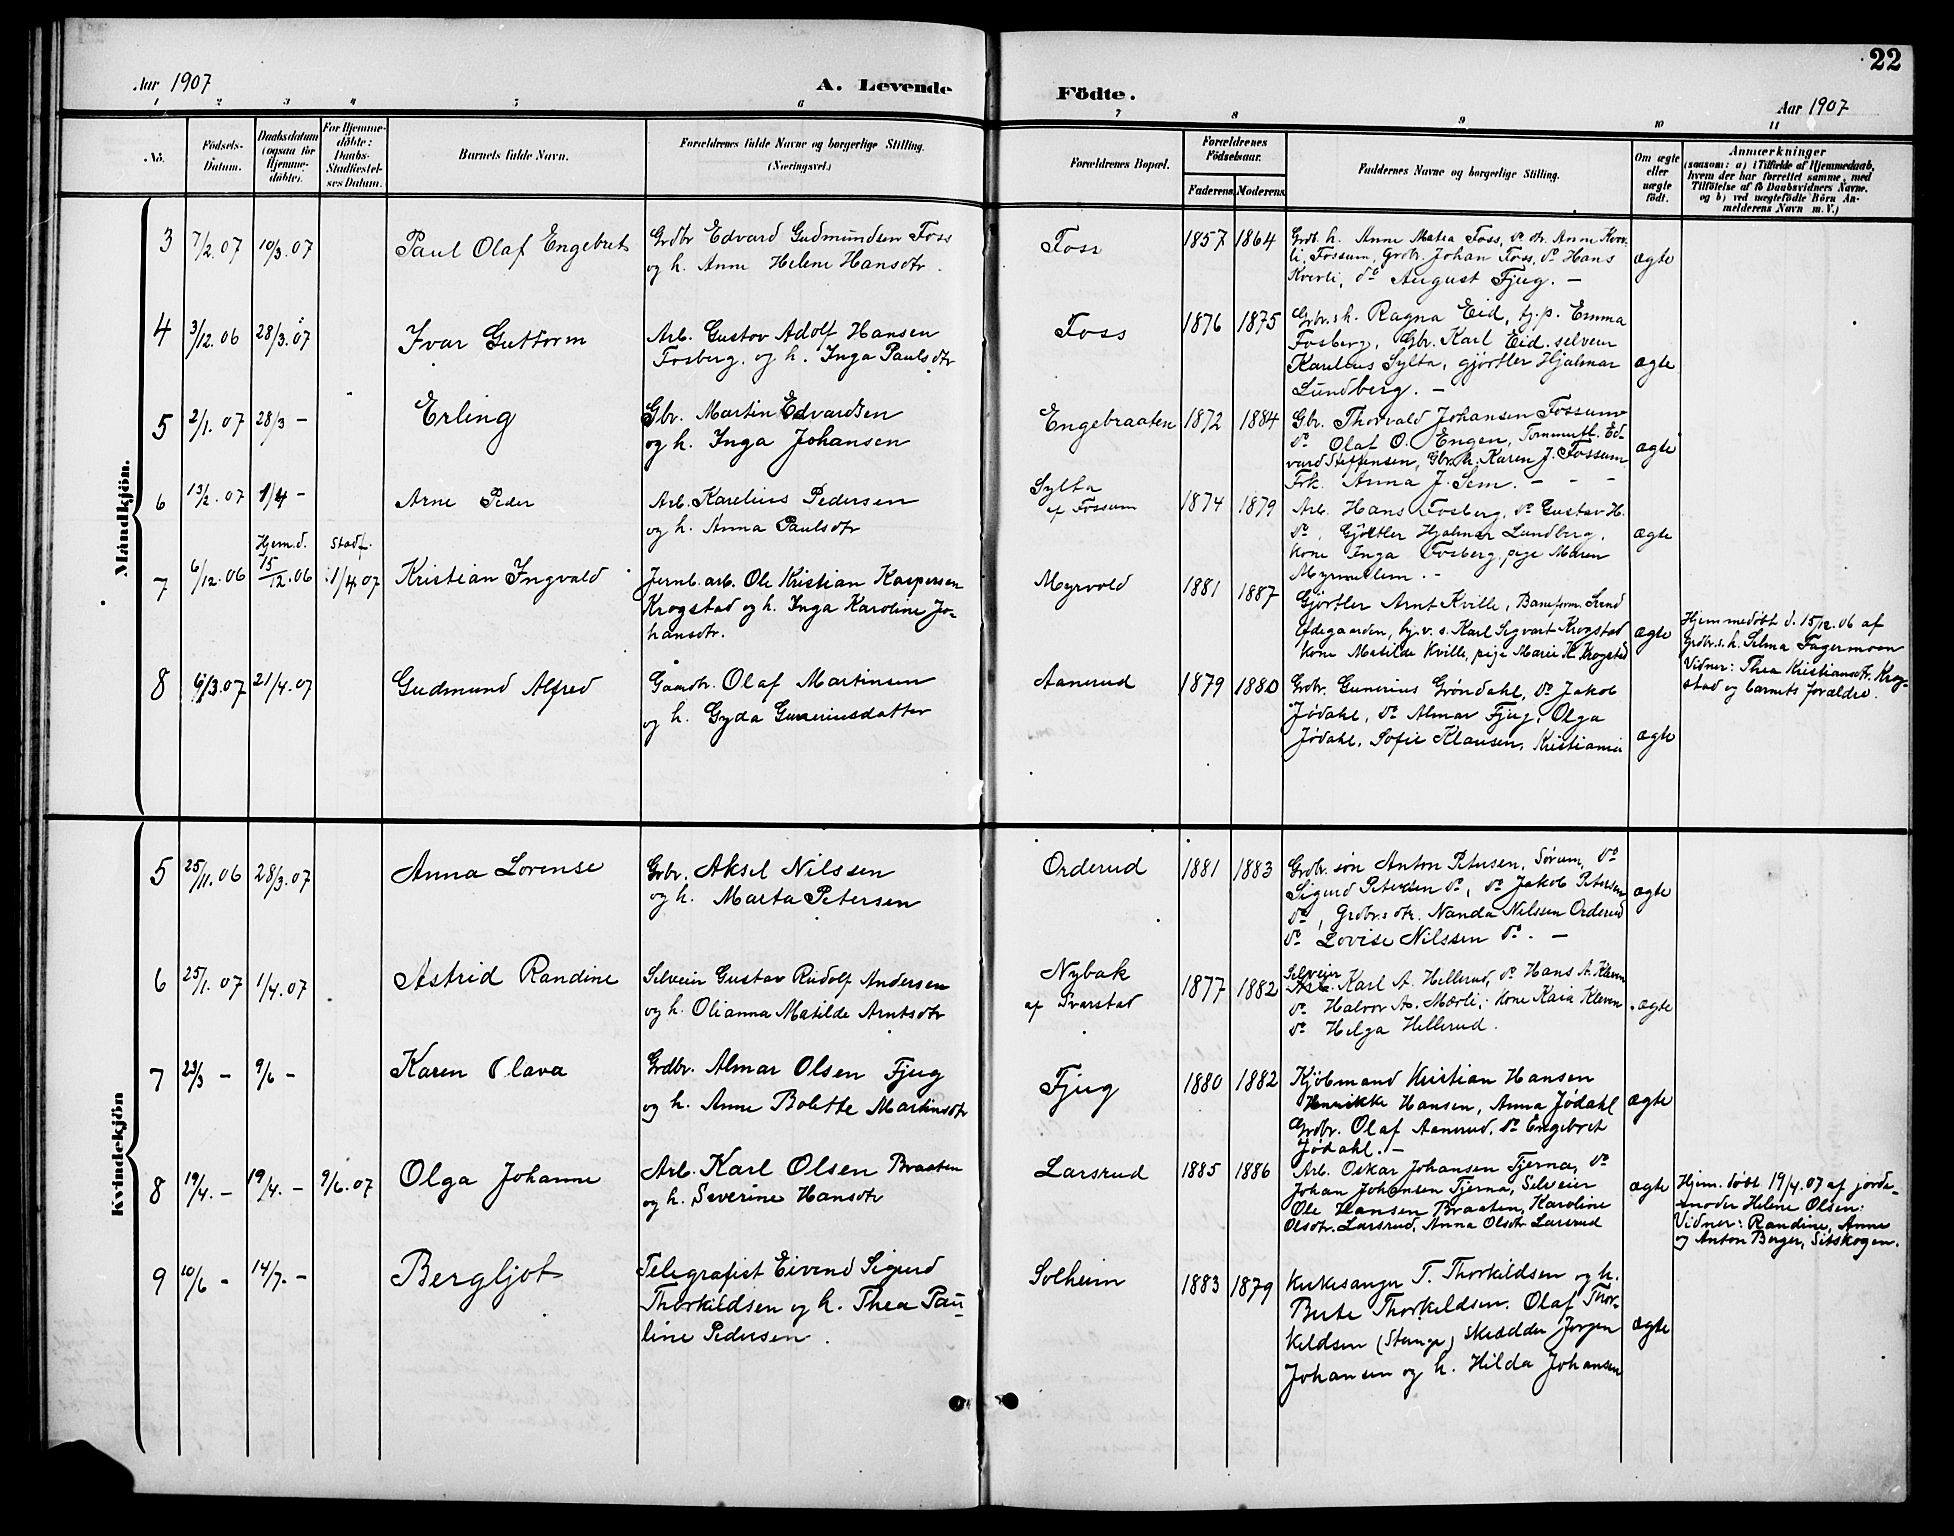 22
Aar 1907
A. Levende
Födte.
Aar 1907
1 2 3 4 5 6 7 8 9 10 11
No.
Födsels-
Datum.
Daabsdatum
(ogsaa for
Hjemme-
döbte).
For Hjemme-
döbte:
Daabs-
Stadfæstel-
ses Datum.
Barnets fulde Navn.
Forældrenes fulde Navne og borgerlige Stilling.
(Næringsvei.)
Forældrenes Bopæl.
Forældrenes
Födselsaar.
Faderens. Moderens.
Faddernes Navne og borgerlige Stilling.
Om ægte
eller
uægte
födt.
Anmærkninger
(saasom: a) i Tilfælde af Hjemmedaab,
hvem der har forrettet samme, med
Tilföielse af to Daabsvidners Navne.
og b) ved uægtefödte Börn An-
melderens Navn m. V.)
Mandkjön.
3 7/2.07 10/3.07 Paul Olaf Engebret
Grdbr Edvard Gudmundsen Foss
og h. Anne Helene Hansdtr.
Foss 1857 1864
Grdb. h. Anne Matea Foss, do dtr. Anne Kver-
li, Fossum, Grdbr. Johan Foss, do Hans
Kverli, do August Fjug. —
ægte
4 3/12.06 28/3.07 Ivar Guttorm
Arb. Gustav Adolf Hansen
Fosberg. og h. Inga Paulsdtr
Foss 1876 1875
Gbr. s h. Ragna Eid, tj. p. Emma
Fosberg, Gbr. Karl Eid. selveier
Karelius Sylta, gjörtler Hjalmar
Lundberg. —
ægte
5 2/1.07 28/3 — Erling
Gbr. Martin Edvardsen
og h. Inga Johansen
Engebraaten 1872 1884
Gbr. Thorvald Johansen Fossum
do Olaf O. Engen, Tömmerfl. Ed-
vard Steffensen, Gbr. h. Karen J. Fossum
Frk. Anna J. Sem. - - -
ægte
6 13/2.07 1/4 — Arne Peder
Arb. Karelius Pedersen
og h. Anna Paulsdtr
Sylta
af Fossum
1874 1879
Arb. Hans Fosberg, do Gustav H.
do, Gjörtler Hjalmar Lundberg,
kone Inga Fosberg, pige Maren
ægte
7 6/12.06 Hjem.d. 15/12.06 Stadf. 1/4 07 Kristian Ingvald
Jernb. arb. Ole Kristian Kaspersen
Krogstad og h. Inga Karoline Jo-
hansdtr.
Myrvold 1881 1887
Gjörtler Arnt Kville, Baneform.
tj. v. s. Karl Sigvart Krogstad
kone Matilde Kville, pige Marie K. Krogstad
ægte
Hjemmedöbt d. 15/12.06 af
Grdbr. s. h. Selma Fagermoen
Vidner: Thea Kristiansdtr. Krog-
stad og barnets forældre.
8 6/3.07 21/4.07 Gudmund Alfred
Gaardbr. Olaf Martinsen
og h. Gyda Guneriusdatter
Aanerud 1879 1880
Grdbr. Gunerius Gröndahl, do Jakob
Jödahl, do Almar Fjug, Olga
Jödahl, Sofie Klausen, Kristiania
ægte
Kvindekjön
5 25/11.06 28/3.07 Anna Lovense
Grbr. Aksel Nilssen
og h. Marta Petersen
Orderud 1881 1883
Grdbr. sön Anton Petersen, Sörum, do
Sigurd Petersen do, do Jakob Petersen
do, Grdbr. s dtr. Nanda Nilssen Orderud
do Lovise Nilssen do. —
ægte
6 25/1.07 1/4.07 Astrid Randine
Selveier Gustav Rudolf Andersen
og h. Olianna Matilde Arntsdtr
Nybak
af Svarstad
1877 1882
Selveier
Karl A. Hellerud, do Hans A. Kleven
do Halvor A. Mærli, kone Kaia Kleven
do Helga Hellerud.
ægte
7 23/3 — 9/6 — Karen Olava
Grdbr. Almar Olsen Fjug
og h. Anne Bolette Martinsdtr
Fjug 1880 1882
Kjöbmand Kristian Hansen
Henrikke Hansen, Anna Jödahl
Grdbr. Olaf Aanerud, do Engebret
Jödahl. —
ægte
8 19/4.— 19/4.— 9/6.07 Olga Johanne
Arb. Karl Olsen Braaten
og h. Severine Hansdtr
Larsrud 1885 1886
Arb. Oskar Johansen Tjerna, do
Johan Johansen Tjerna, Selveier
Ole Hansen Braaten, Karoline
Olsdtr. Larsrud, Anna Olsdtr Larsrud
ægte
Hjem. döbt 19/4.07 af jorde-
moder Helene Olsen:
Vidner: Randine, Anne
og Anton Berger, Sitskogen.
9 10/6 — 14/7.— Bergljot
Telegrafist Eivind Sigurd
Thorkildsen og h. Thea Pau-
line Pedersen.
Solheim 1883 1879
Kirkesanger T. Thorkildsen og h.
Berte Thorkeldsen. Olaf Thor-
keldsen (Stange) skrædder Jørgen
Johansen og h. Hilda Johansen
ægte